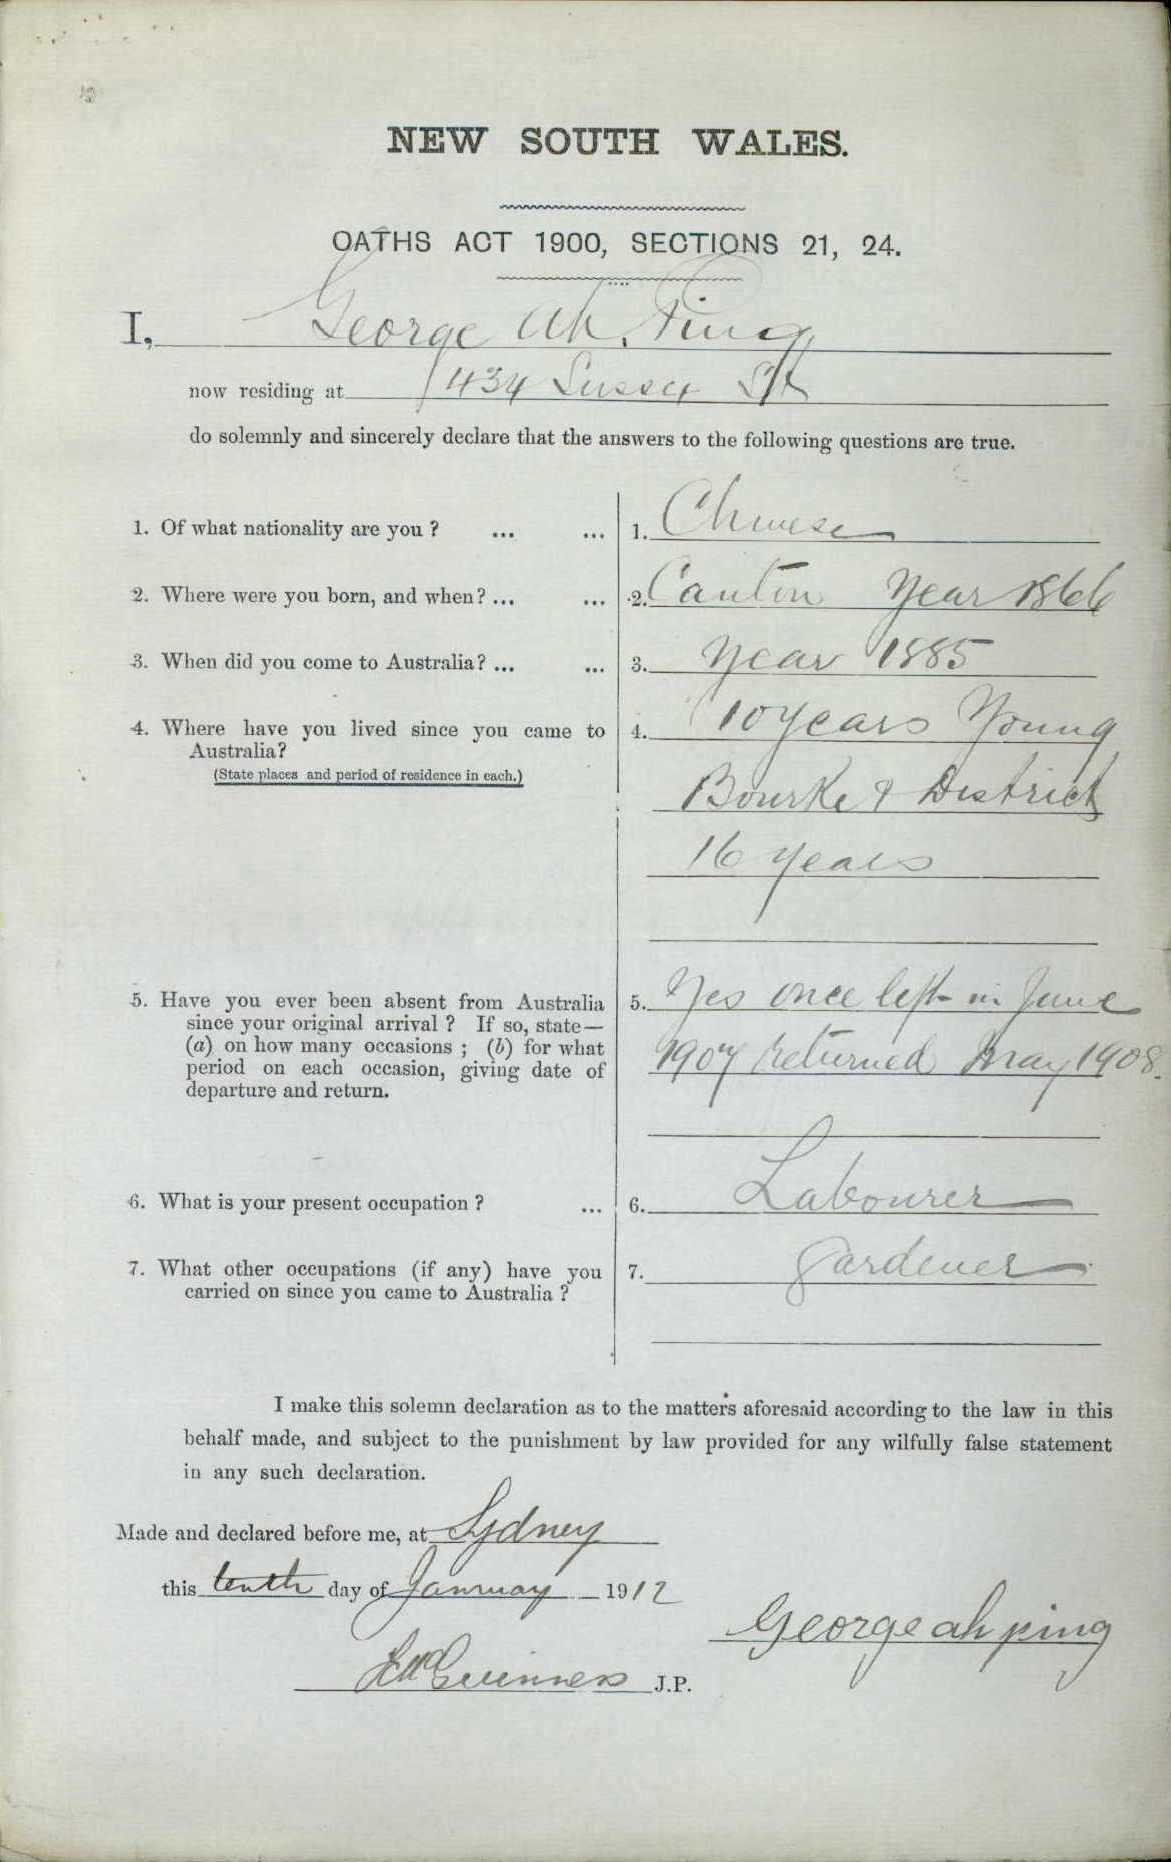 NEW SOUTH WALES.
OATHS ACT 1900, SECTIONS 21, 24.
I, George Ah Ping
now residing at 434 Sussex St
do solemnly and sincerely declare that the answers to the following questions are true.
1. Of what nationality are you ? ... ... 1. Chinese
2. Where were you born, and when? ... ... 2. Canton Year 1866
3. When did you come to Australia? ... ... 3. Year 1885
4. Where have you lived since you came to 4. 10 years Young
Australia?
(State places and period of residence in each.)
Bourke & District
16 years
5. Have you ever been absent from Australia 5. Yes once left in June
since your original arrival ? If so, state—
(a) on how many occasions ; (b) for what 1907 returned May 1908.
period on each occasion, giving date of
departure and return.
6. What is your present occupation ? ... 6. Labourer
7. What other occupations (if any) have you 7. gardener
carried on since you came to Australia ?
I make this solemn declaration as to the matters aforesaid according to the law in this
behalf made, and subject to the punishment by law provided for any wilfully false statement
in any such declaration.
Made and declared before me, at Sydney
this tenth day of January 1912
George ah ping
McGuinness J.P.